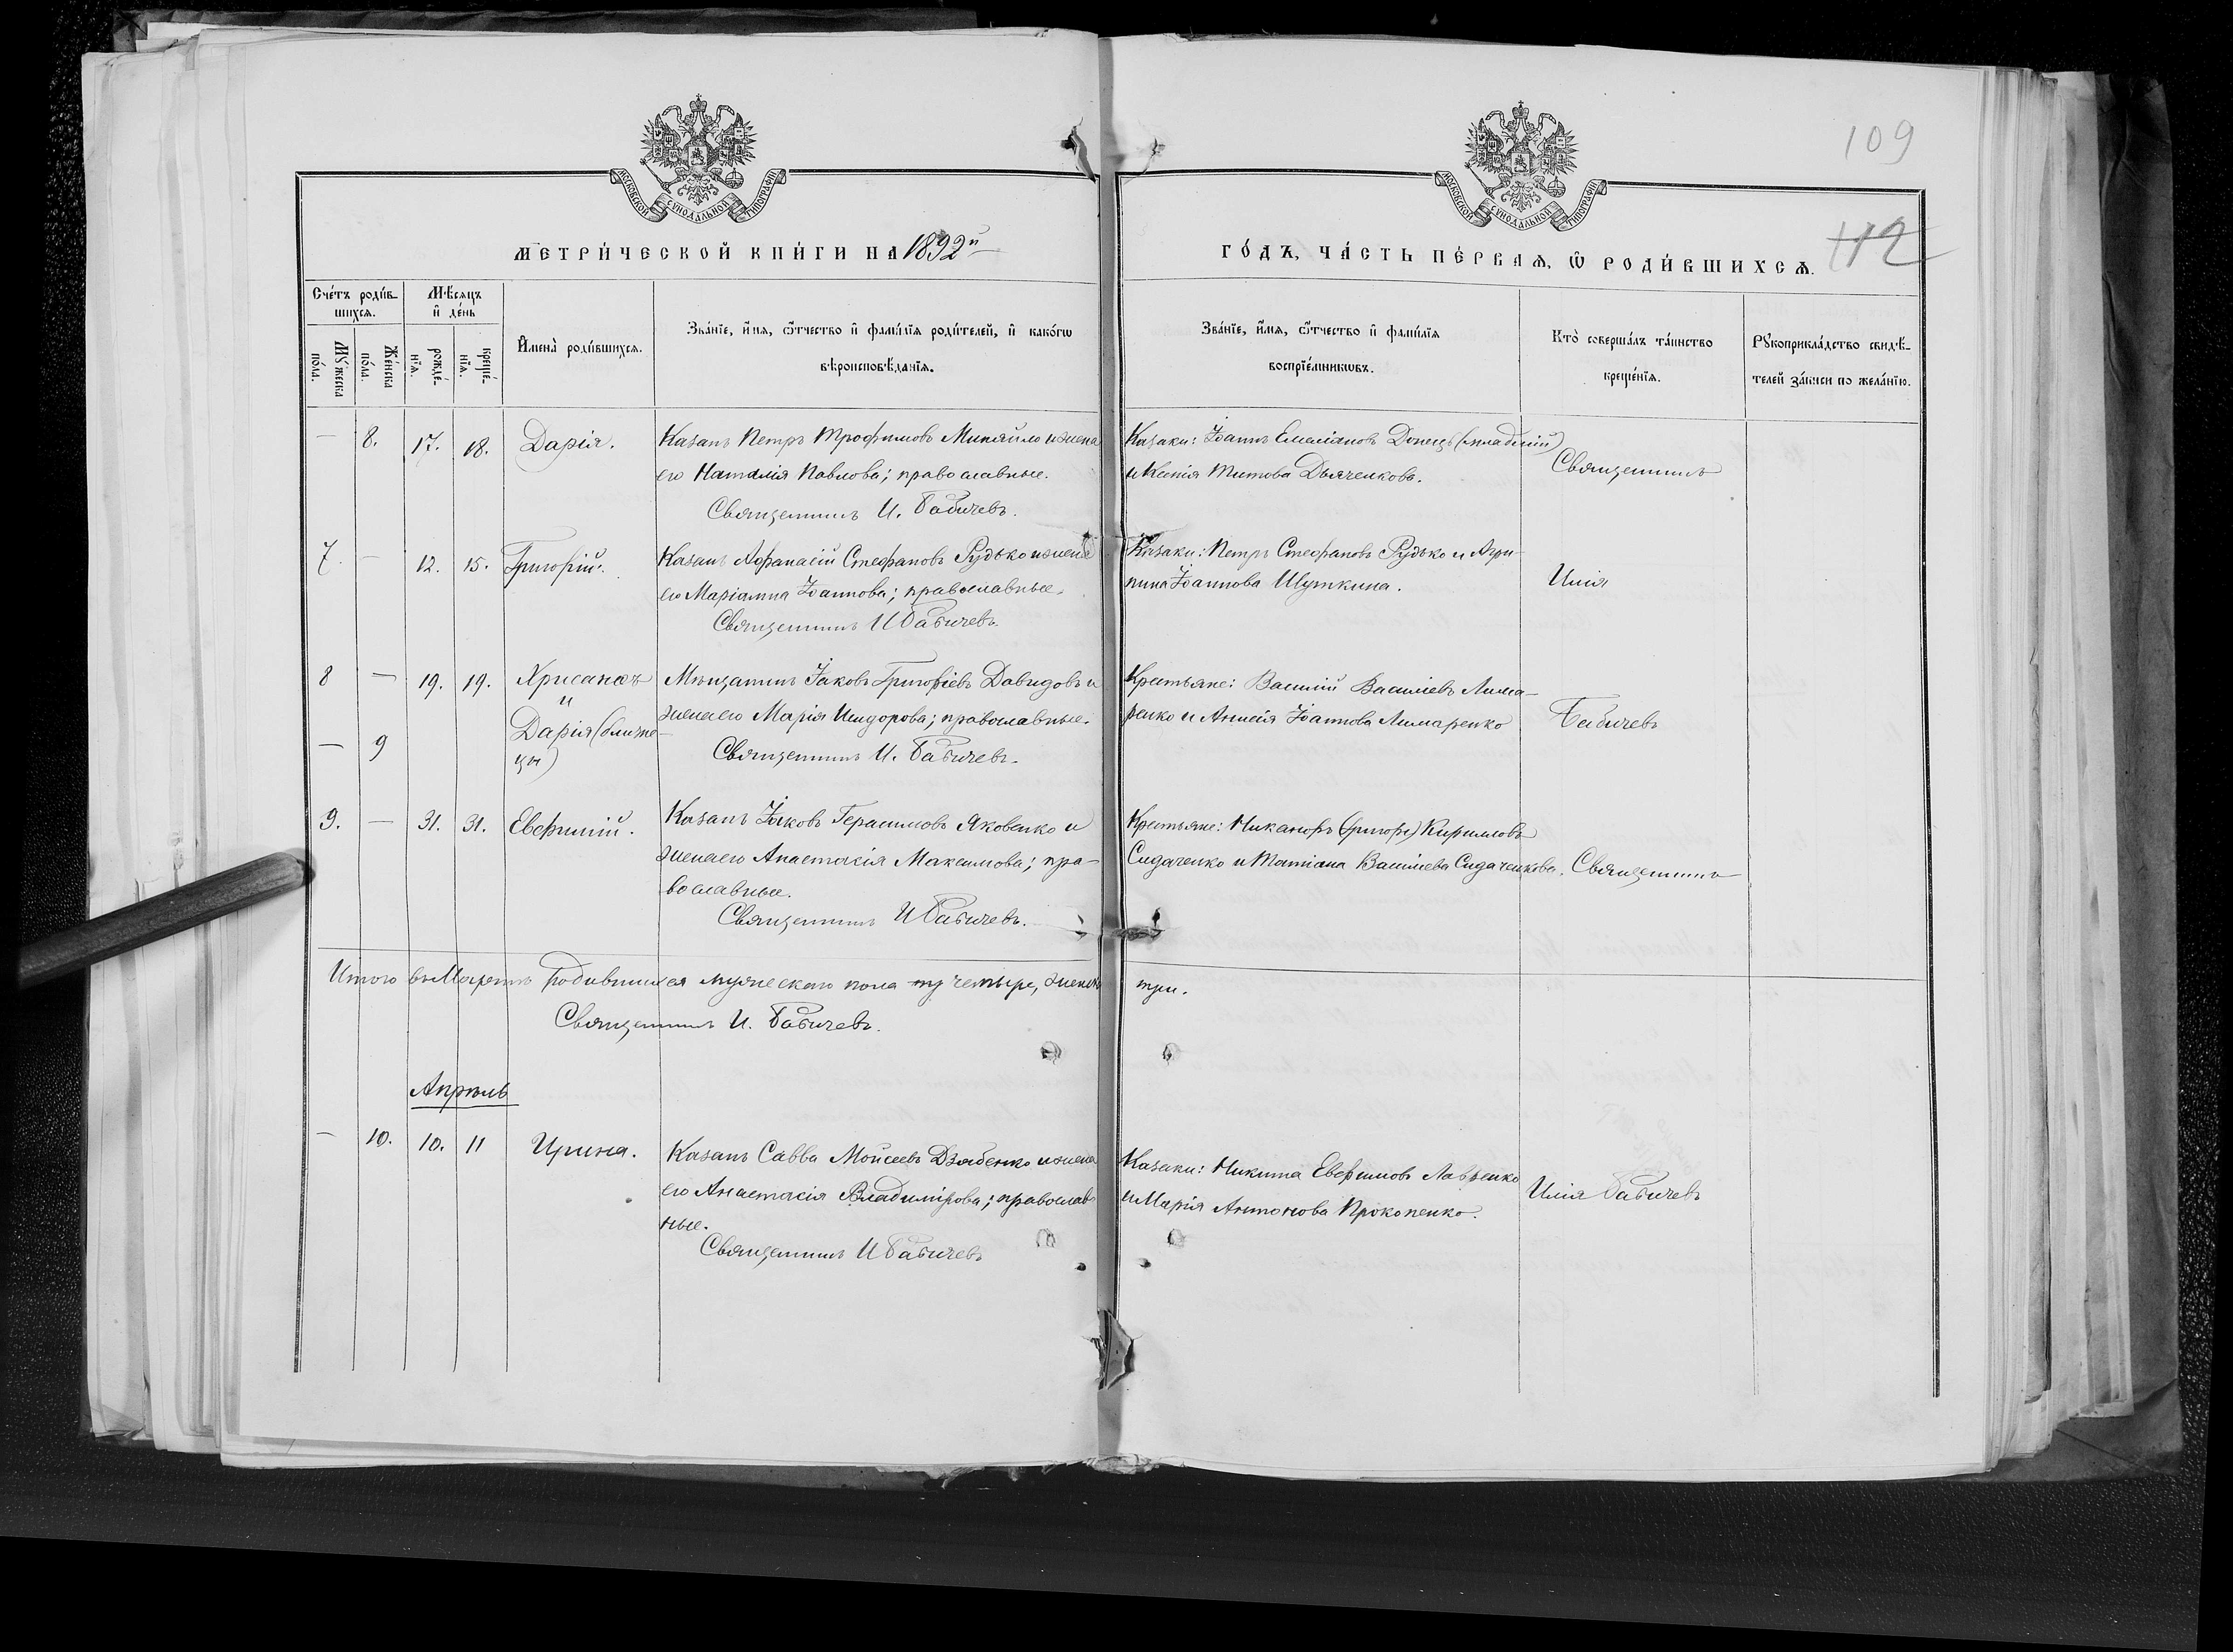 109
112
МОСКОВСКОЙ СУНОДАЛЬНОЙ ТИПОГРАФІИ
МОСКОВСКОЙ СУНОДАЛЬНОЙ ТИПОГРАФІИ
МЕТРИ́ЧЕСКОЙ КНИ́ГИ НА 1892й
ГО́ДЪ, ЧА́СТЬ ПЕ́РВАѦ, Ѿ РОДИ́ВШИХСѦ.
Сче́тъ роди́в-
шихсѧ.
Мꙋ́жеска по́ла.
Же́нска по́ла.
Мѣ́сѧцъ и҆ де́нь
рожде́-нїѧ.
креще́-нїѧ.
И҆мена̀ роди́вшихсѧ.
Зва́нїе, и҆́мѧ, ѻ҆́тчество и҆ фамѝлїѧ роди́телей, и҆ како́гѡ
вѣроисповѣ́данїѧ.
Зва́нїе, и҆́мѧ, ѻ҆́тчество и҆ фамѝлїѧ
воспрїе́мникѡвъ.
Кто̀ соверша́лъ та́инство
креще́нїѧ.
Рꙋкоприкла́дство свидѣ́-
телей за́писи по жела́нїю.
— 8. 17. 18. Дарія. Казакъ Петръ Трофимовъ Миняйло и жена
его Наталія Павлова; православные.
Священникъ И. Бабичевъ.
Казаки: Іоаннъ Емеліановъ Донецъ (младшій)
и Ксенія Титова Дьяченкова.
Священникъ
7. — 12. 15. Григорій. Казакъ Аѳанасій Стефановъ Рудько и жена
его Маріамна Іоаннова; православные.
Священникъ И Бабичевъ.
Казаки: Петръ Стефановъ Рудько и Агри-
пина Іоаннова Шуткина.
Илія
8 — 19. 19. Хрисанѳъ Мѣщанинъ Іаковъ Григоріевъ Давидовъ и
и
жена его Марія Исидорова; православные.
— 9 Дарія (близне-
цы)
Священникъ И. Бабичевъ.
Крестьяне: Василій Василіевъ Лима-
ренко и Анисія Іоаннова Лимаренко
Бабичевъ
9. — 31. 31. Евфимій. Казакъ Іаковъ Герасимовъ Яковенко и
жена его Анастасія Максимова; пра-
вославные.
Священникъ И Бабичевъ.
Крестьяне: Никаноръ (Григор) Кирилловъ
Сидаченко и Татіана Василіева Сидаченкова.
Священникъ
Итого въ Мартѣ родившихся мужескаго пола четыре, женск. три.
Священникъ И. Бабичевъ.
Апрѣль
— 10. 10. 11 Ирина. Казакъ Савва Моисеевъ Дзябенко и жена
его Анастасія Владимірова; православ-
ные.
Священникъ И Бабичевъ
Казаки: Никита Евфимовъ Лавренко
и Марія Антонова Прокопенко.
Илія Бабичевъ